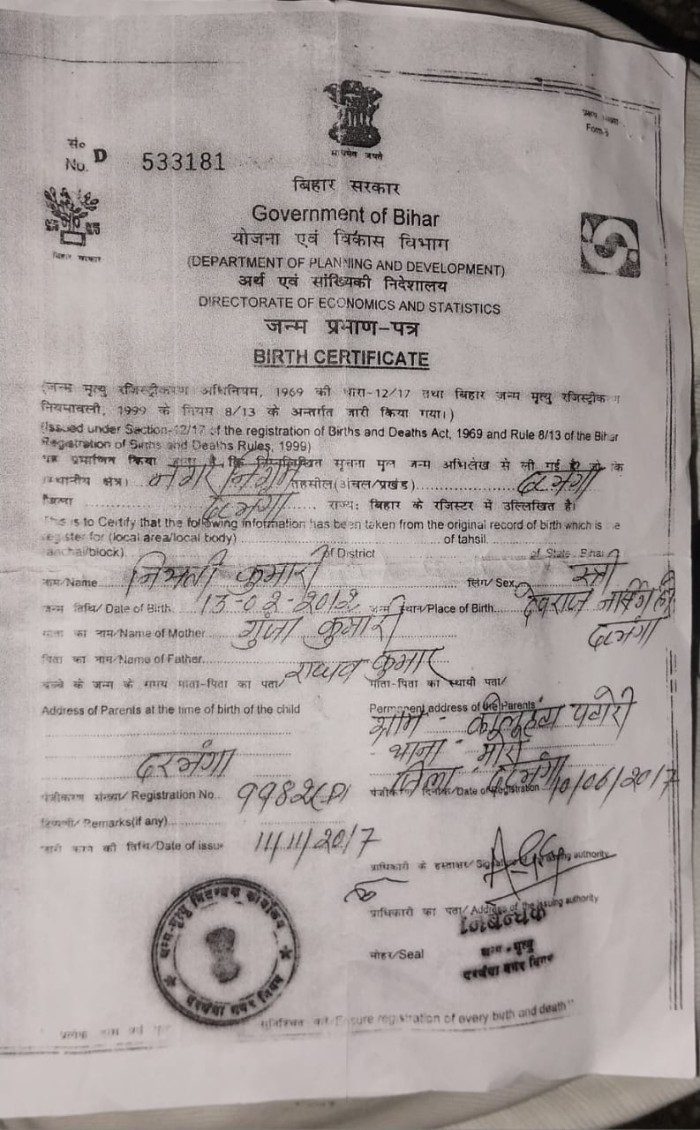 सं०
No. D 533181
Form-5
बिहार सरकार
बिहार सरकार
Government of Bihar
योजना एवं विकास विभाग
(DEPARTMENT OF PLANNING AND DEVELOPMENT)
अर्थ एवं सांख्यिकी निदेशालय
DIRECTORATE OF ECONOMICS AND STATISTICS
जन्म प्रमाण-पत्र
BIRTH CERTIFICATE
(जन्म मृत्यु रजिस्ट्रीकरण अधिनियम, 1969 की धारा-12/17 तथा बिहार जन्म मृत्यु रजिस्ट्रीकरण
नियमावली, 1999 के नियम 8/13 के अन्तर्गत जारी किया गया।)
(Issued under Section-12/17 of the registration of Births and Deaths Act, 1969 and Rule 8/13 of the Bihar
Registration of Births and Deaths Rules, 1999)
यह प्रमाणित किया जाता है कि निम्नलिखित सूचना मूल जन्म अभिलेख से ली गई है जो कि
(स्थानीय क्षेत्र) नगर निगम तहसील (अंचल/प्रखंड) दरभंगा
जिला दरभंगा राज्य: बिहार के रजिस्टर में उल्लिखित है।
This is to Certify that the following information has been taken from the original record of birth which is
register for (local area/local body) of tahsil
(anchal/block) of District of State Bihar
नाम/Name कुमारी लिंग/Sex स्त्री
जन्म तिथि/Date of Birth 13-02-2012 जन्म स्थान/Place of Birth देवराज नर्सिंग
दरभंगा
माता का नाम/Name of Mother गुंजा कुमारी
पिता का नाम/Name of Father राघव कुमार
बच्चे के जन्म के समय माता-पिता का पता/ माता-पिता का स्थायी पता/
Address of Parents at the time of birth of the child Permanent address of the Parents
ग्राम - पटोरी
दरभंगा थाना - मोरो
जिला - दरभंगा
पंजीकरण संख्या/Registration No. 9982 पंजीकरण दिनांक/Date of Registration 10/06/2017
टिप्पणी/Remarks(if any)
जारी करने की तिथि/Date of issue 11/11/2017
प्राधिकारी के हस्ताक्षर/Signature of the issuing authority
प्राधिकारी का पता/Address of the issuing authority
निबन्धक
मोहर/Seal
जन्म-मृत्यु
दरभंगा नगर निगम
Ensure registration of every birth and death"